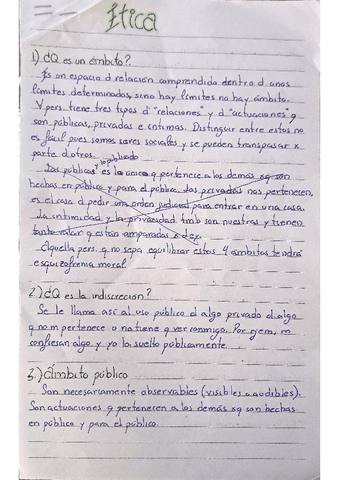 Ética
1) ¿Q es un ámbito?
Es un espacio d relación comprendido dentro d unos
límites determinados, si no hay límites no hay ámbito.
V pers. tiene tres tipos d "relaciones" y d "actuaciones" q
son públicas, privadas e íntimas. Distinguir entre estos no
es fácil pues somos seres sociales y se pueden transpasar x
parte d otros.
lo publicado
Las públicas es la única q pertenece a los demás xq son
hechas en público y para el público. Las privadas nos pertenecen,
es el caso d pedir una orden judicial para entrar en una casa.
La intimidad y la privacidad tmb son nuestras y tienen
tanto valor q están amparadas x
Aquella pers. q no sepa equilibrar estos 4 ámbitos tendrá
esquizofrenia moral.
2) ¿Q es la indiscreción?
Se le llama así al uso público d algo privado d algo
q no m pertenece o no tiene q ver conmigo. Por ejem, m
confiesan algo y yo lo suelto públicamente.
3.) Ámbito público
Son necesariamente observables (visibles o audibles).
Son actuaciones q pertenecen a los demás xq son hechas
en público y para el público.